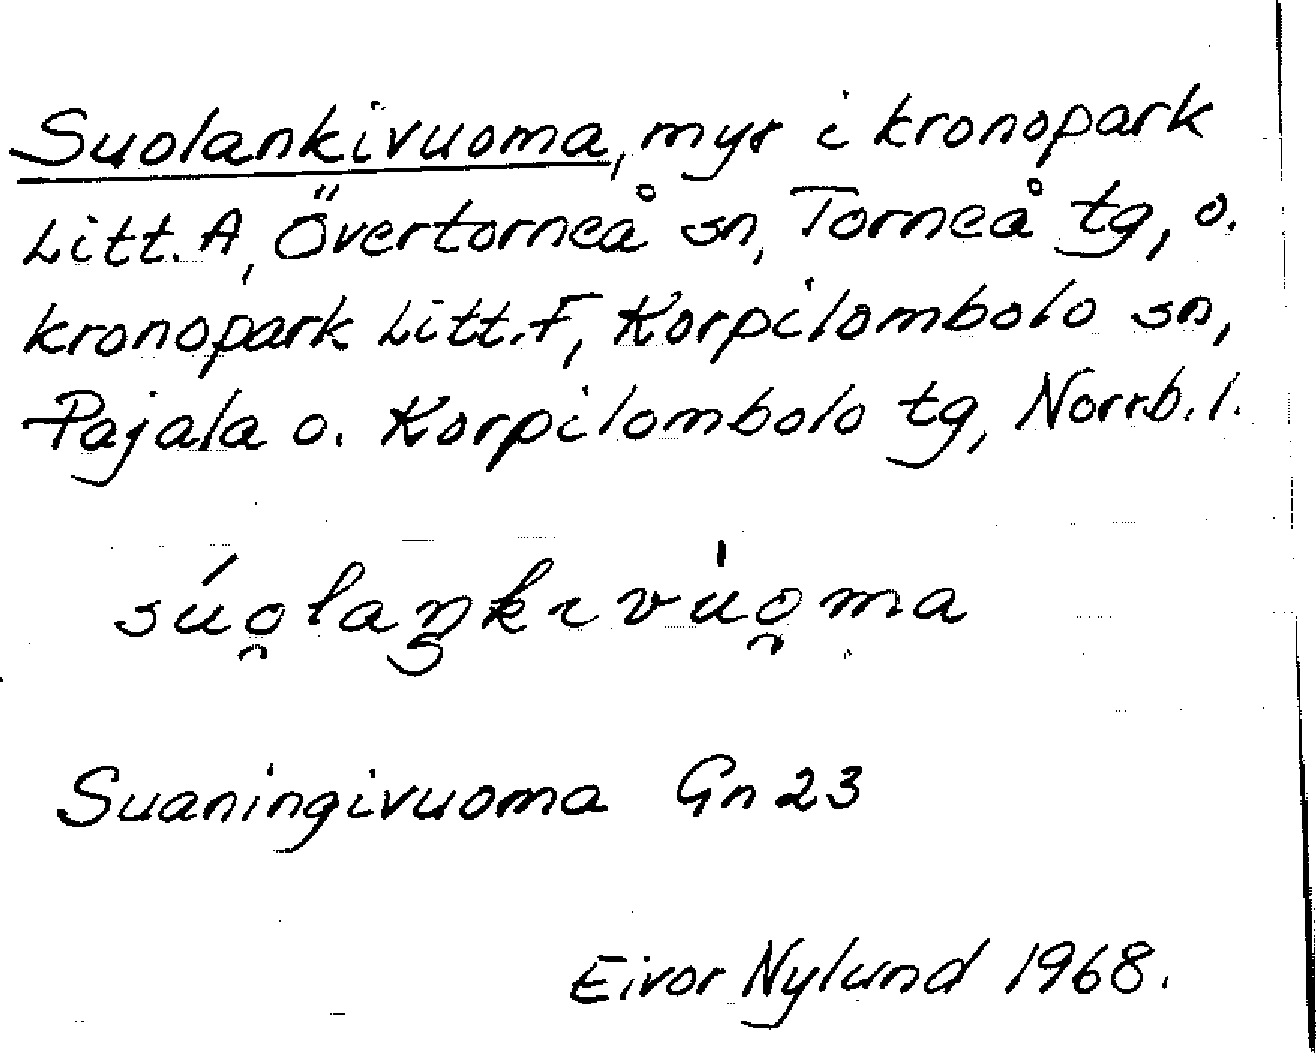 Suolankivuoma, myr i kronopark
Litt. A, Övertorneå sn, Torneå tg, o.
kronopark Litt. F, Korpilombolo sn,
Pajala o. Korpilombolo tg, Norrb. l.
súo̯laŋkɩvu̍o̯ma
Suaningivuoma Gn 23
Eivor Nylund 1968.